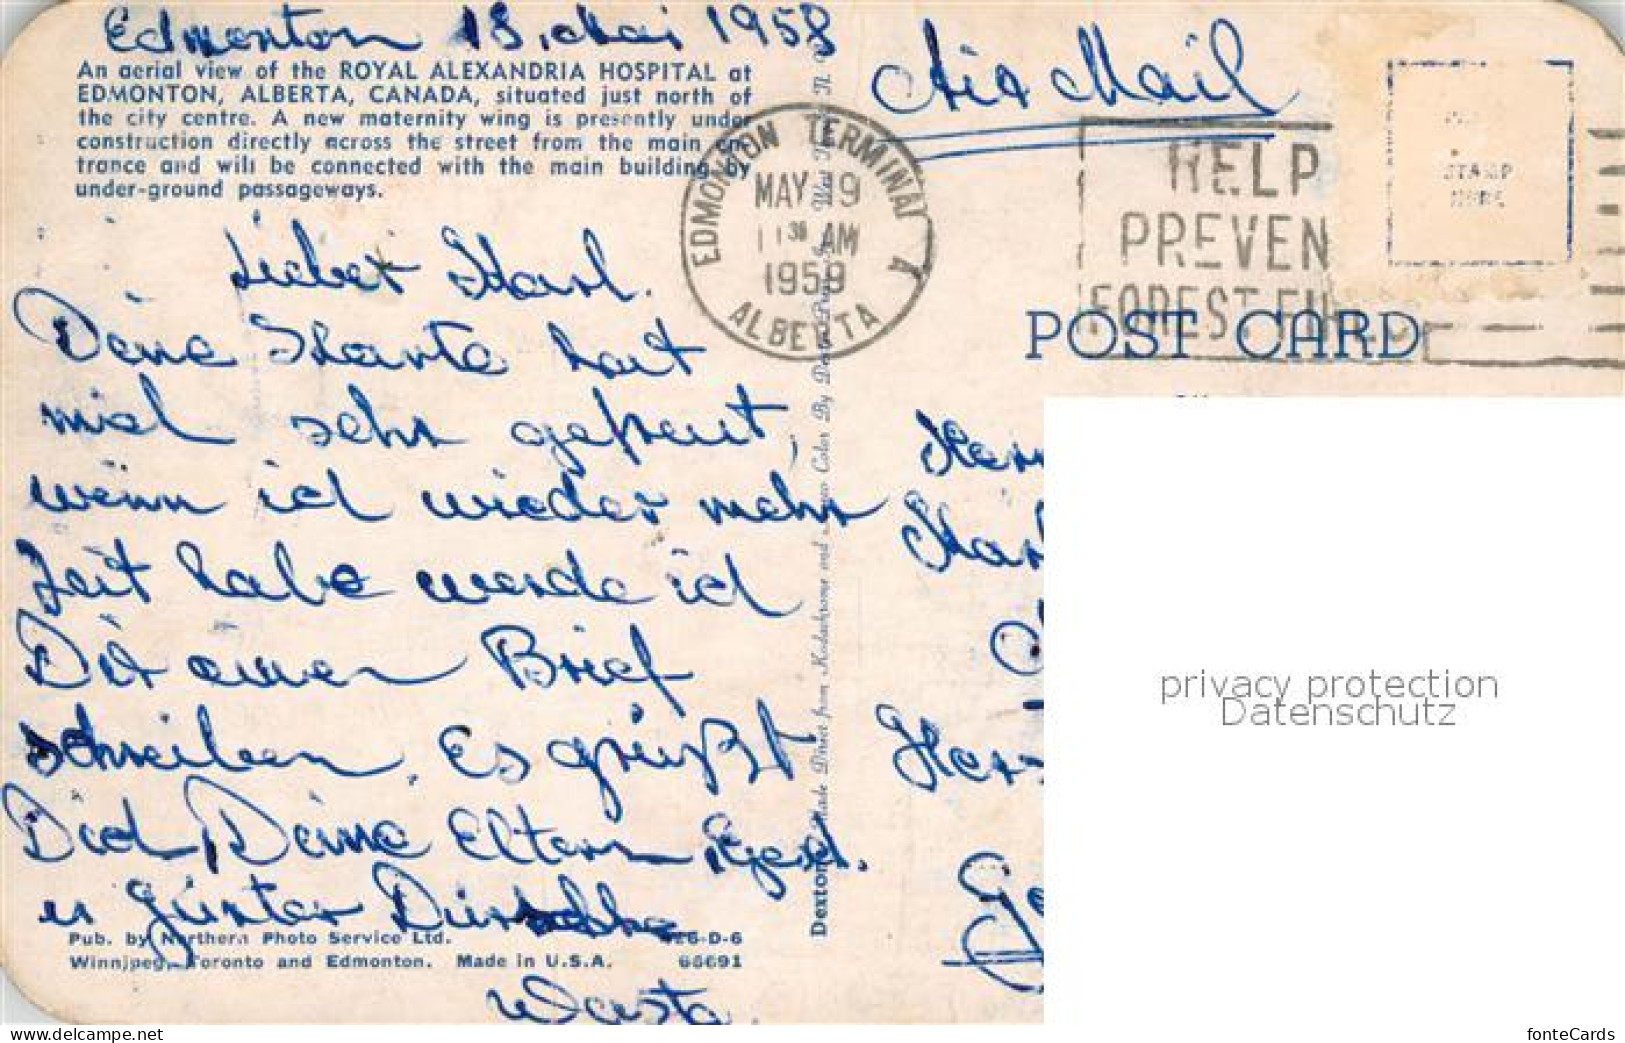 Edmonton 18. Mai 1958
Air Mail
An aerial view of the ROYAL ALEXANDRIA HOSPITAL at
EDMONTON, ALBERTA, CANADA, situated just north of
the city centre. A new maternity wing is presently under
construction directly across the street from the main en-
trance and will be connected with the main building by
under-ground passageways.
EDMONTON TERMINAL A
MAY 19
11 30 AM
1959
ALBERTA
HELP
PREVEN
FOREST FI
STAMP
HERE
POST CARD
Lieber Karl.
Deine Karte hat
mich sehr gefreut,
wenn ich wieder mehr
Zeit habe werde ich
Dir einen Brief
schreiben. Es grüßt
Dich, Deine Eltern, Gerd.
u Günter Dein
Pub. by Northern Photo Service Ltd. 426-D-6
Winnipeg, Toronto and Edmonton. Made in U.S.A. 68691
Dexton Made Direct from Kodachrome and Ansco Color By Dexter Press, Inc. West
privacy protection
Datenschutz
fonteCards